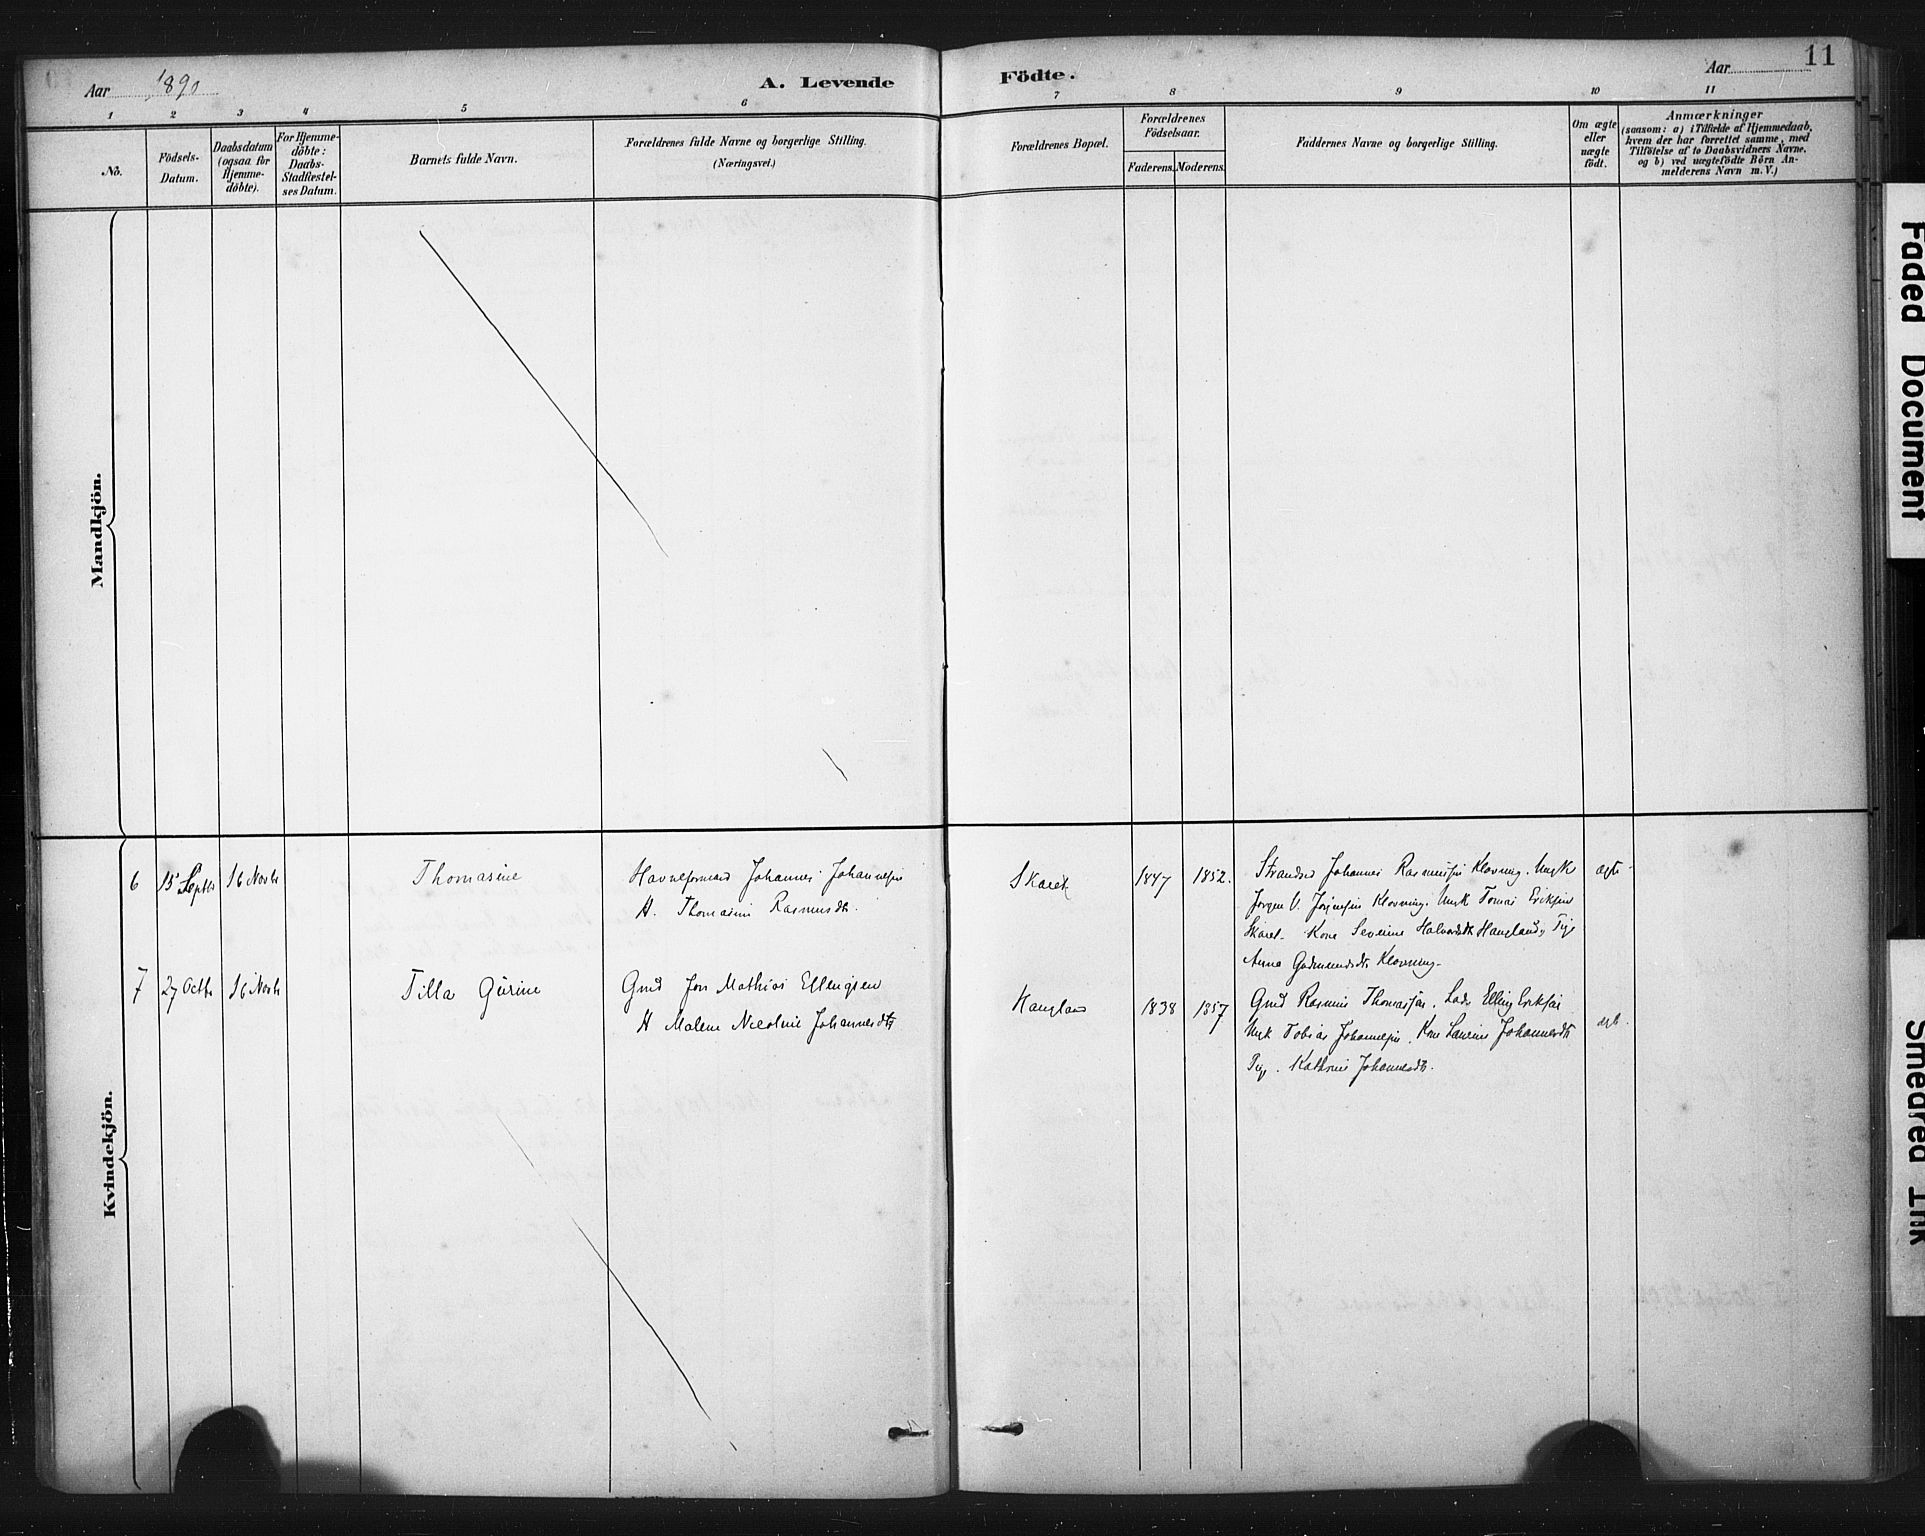 Aar 1890
A. Levende
Födte.
Aar
11
1 2 3 4 5 6
7 8 9 10 11
No.
Födsels-
Datum.
Daabsdatum
(ogsaa for
Hjemme-
döbte).
For Hjemme-
döbte:
Daabs-
Stadfæstel-
ses Datum.
Barnets fulde Navn.
Forældrenes fulde Navne og borgerlige Stilling.
(Næringsvei.)
Forældrenes Bopæl.
Forældrenes
Födselsaar.
Faderens. Moderens.
Faddernes Navne og borgerlige Stilling.
Om ægte
eller
uægte
födt.
Anmærkninger
(saasom: a) i Tilfælde af Hjemmedaab,
hvem der har forrettet samme, med
Tilföielse af to Daabsvidners Navne,
og b) ved uægtefödte Börn An-
melderens Navn m. V.)
Mandkjön.
Kvindekjön.
6 15 Septbr 16 Novbr Thomasine
Havneformand Johannes Johannessen
H. Thomasine Rasmusdtr.
Skaret 1847 1852.
Johannes Rasmussen Klovning. Ungk
Jörgen Klovning. Ungk Tomas Eriksen
Skaret. Kone Severine Halvordsdtr Haugland, Pige
Anna Gudmundsdtr Klovning.
ægte
7 27 Octbr 16 Novbr Tilla Gurine
Gmd Jon Mathias Ellingsen
H Malene Nicoline Johannesdtr
Haugland 1838 1857
Gmd Rasmus Thomassen. Elling Eriksen
Ungk Tobias Johannessen. Kone Laurine Johannesdtr
Pige. Kathrine Johannesdtr.
ægte.
Faded Document
Smeared Ink